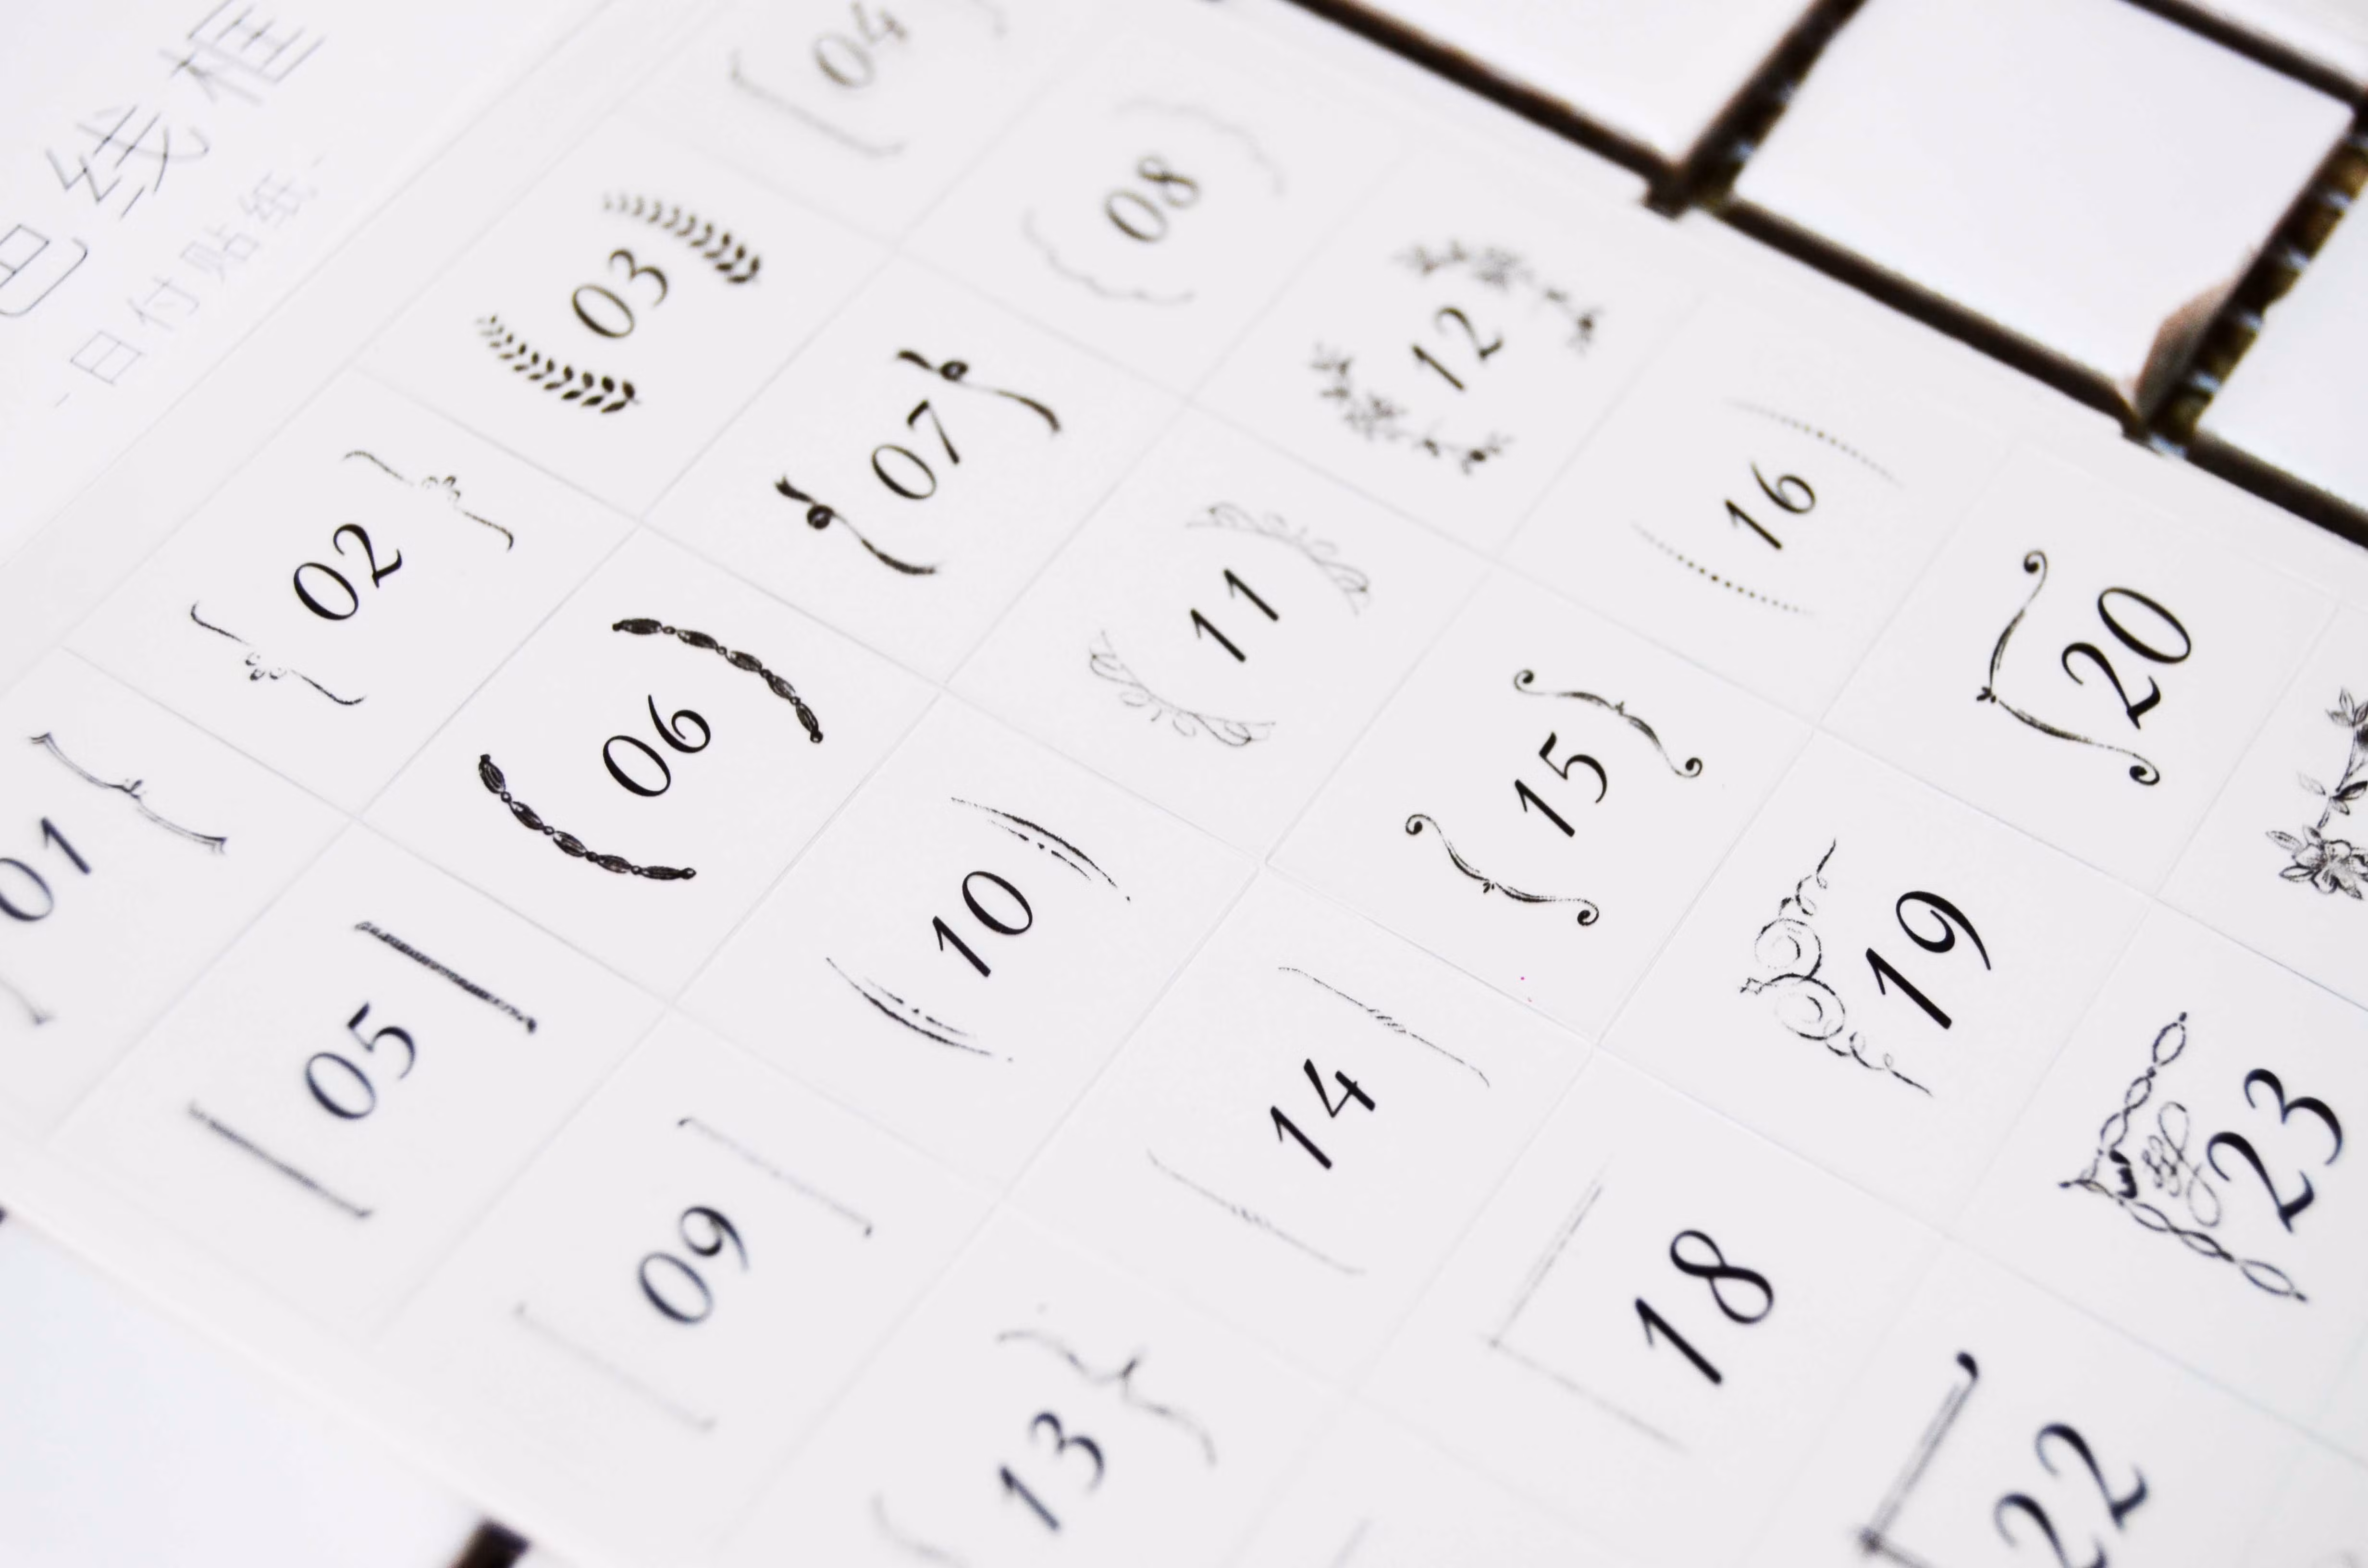 线框
-日付贴纸-
01
02
03
04
05
06
07
08
09
10
11
12
13
14
15
16
18
19
20
22
23